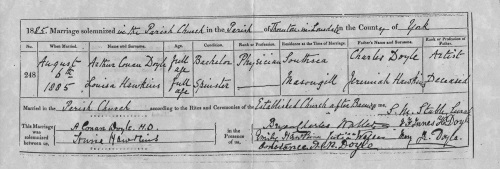 1885. Marriage solemnized in the Parish Church in the Parish of Thornton in Lonsdale in the County of York
No. When Married. Name and Surname. Age. Condition. Rank or Profession. Residence at the Time of Marriage. Father's Name and Surname. Rank or Profession of Father.
248 August 6th 1885 Arthur Conan Doyle full age Bachelor Physician Southsea Charles Doyle Artist
Louisa Hawkins full age Spinster Masongill Jeremiah Hawkins Deceased
Married in the Parish Church according to the Rites and Ceremonies of the Established Church after Banns by me S. W. Stable, Curate
This Marriage was solemnized between us, A Conan Doyle. M.D.
Louise Hawkins
in the Presence of us, Bryan Charles Waller
Emily Hawkins Julia Waller Mary J. E. Doyle
Constance Doyle